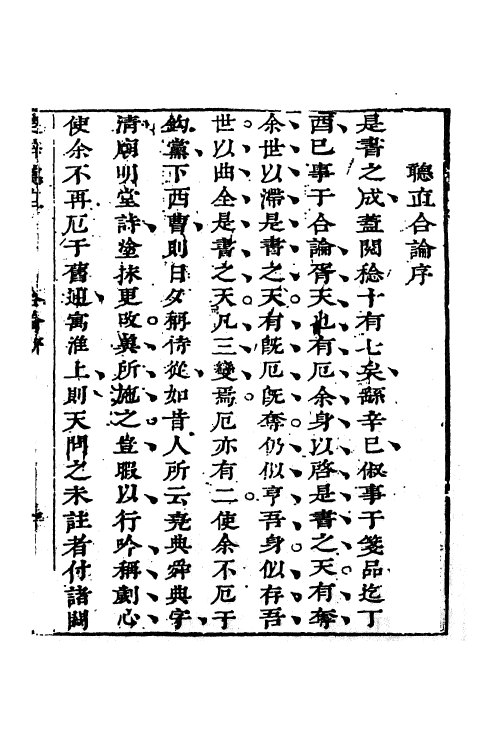 聽直合論序
是書之成蓋閱稔十有七矣繇辛巳俶事于箋品迄丁
酉巳事于合論胥天也有厄余身以啓是書之天有奪
余世以滯是書之天有旣厄旣奪仍似亨吾身似存吾
世以曲全是書之天凡三變焉厄亦有二使余不厄于
鈎黨下西曹則日夕稱侍從如昔人所云堯典舜典字
清廟明堂詩塗抹更改奚所施之豈暇以行吟稱劃心
使余不再厄于舊逋寓淮上則天問之未註者付諸闕